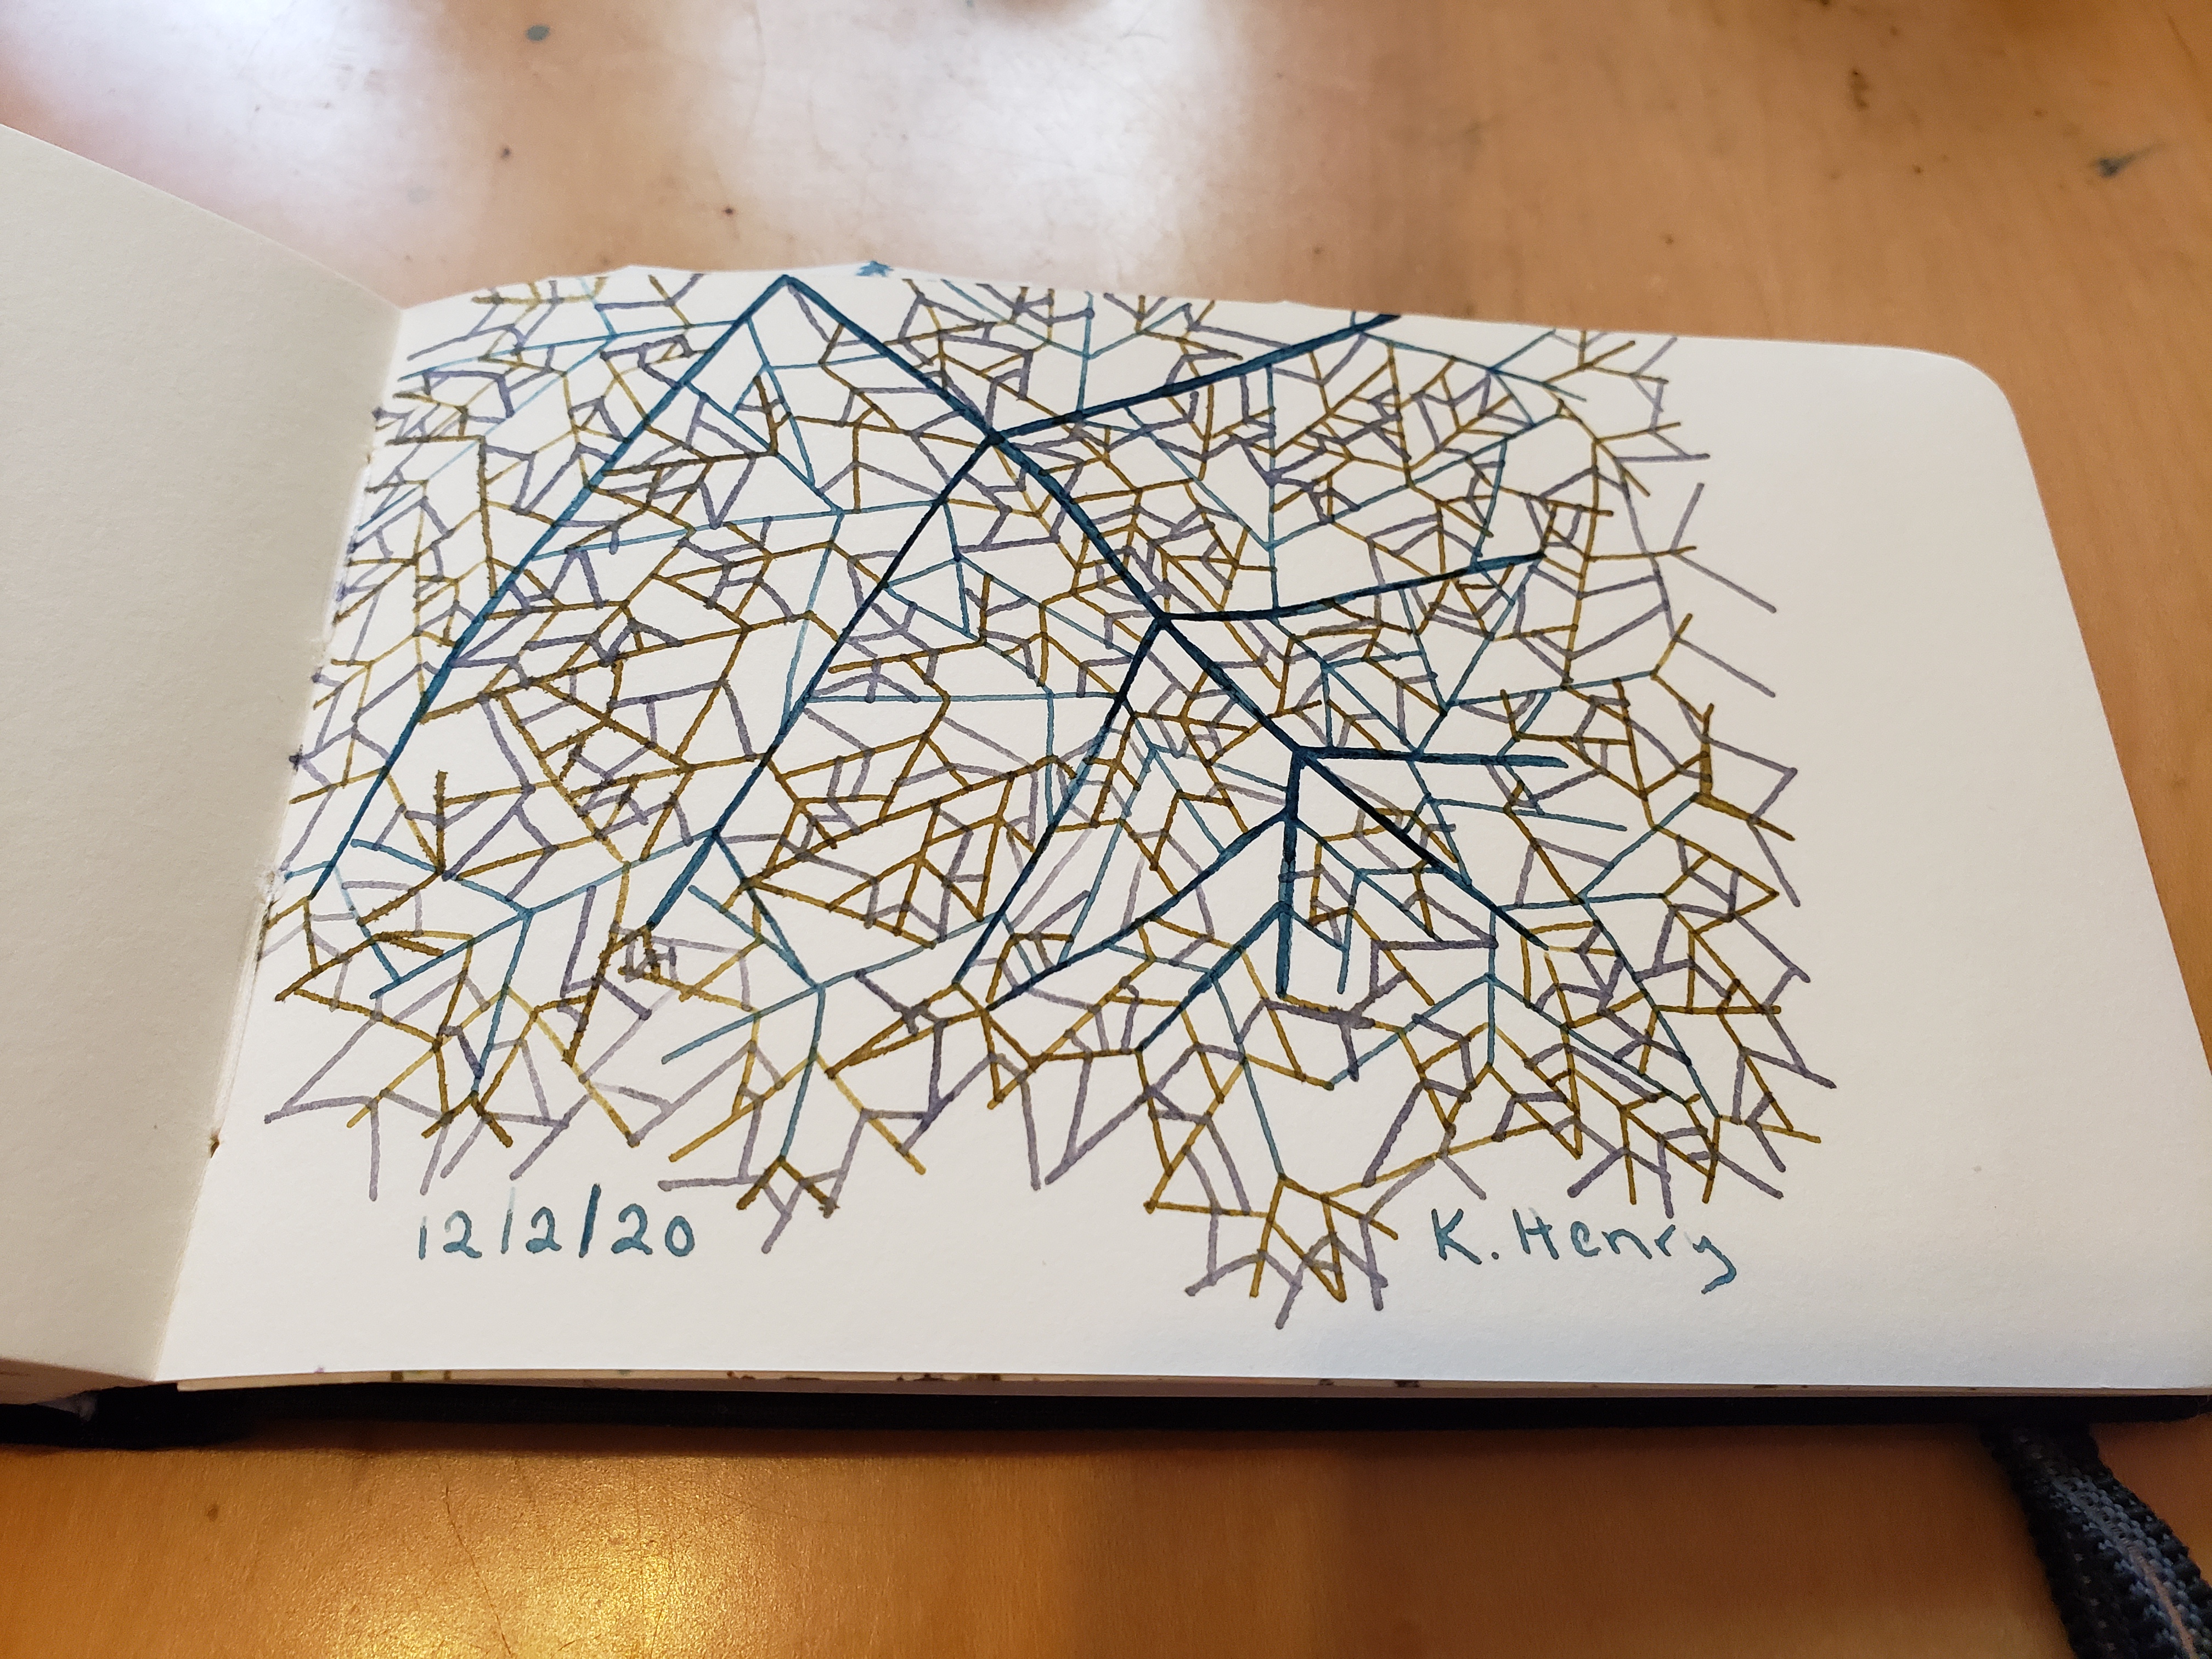 12/2/20
K. Henry